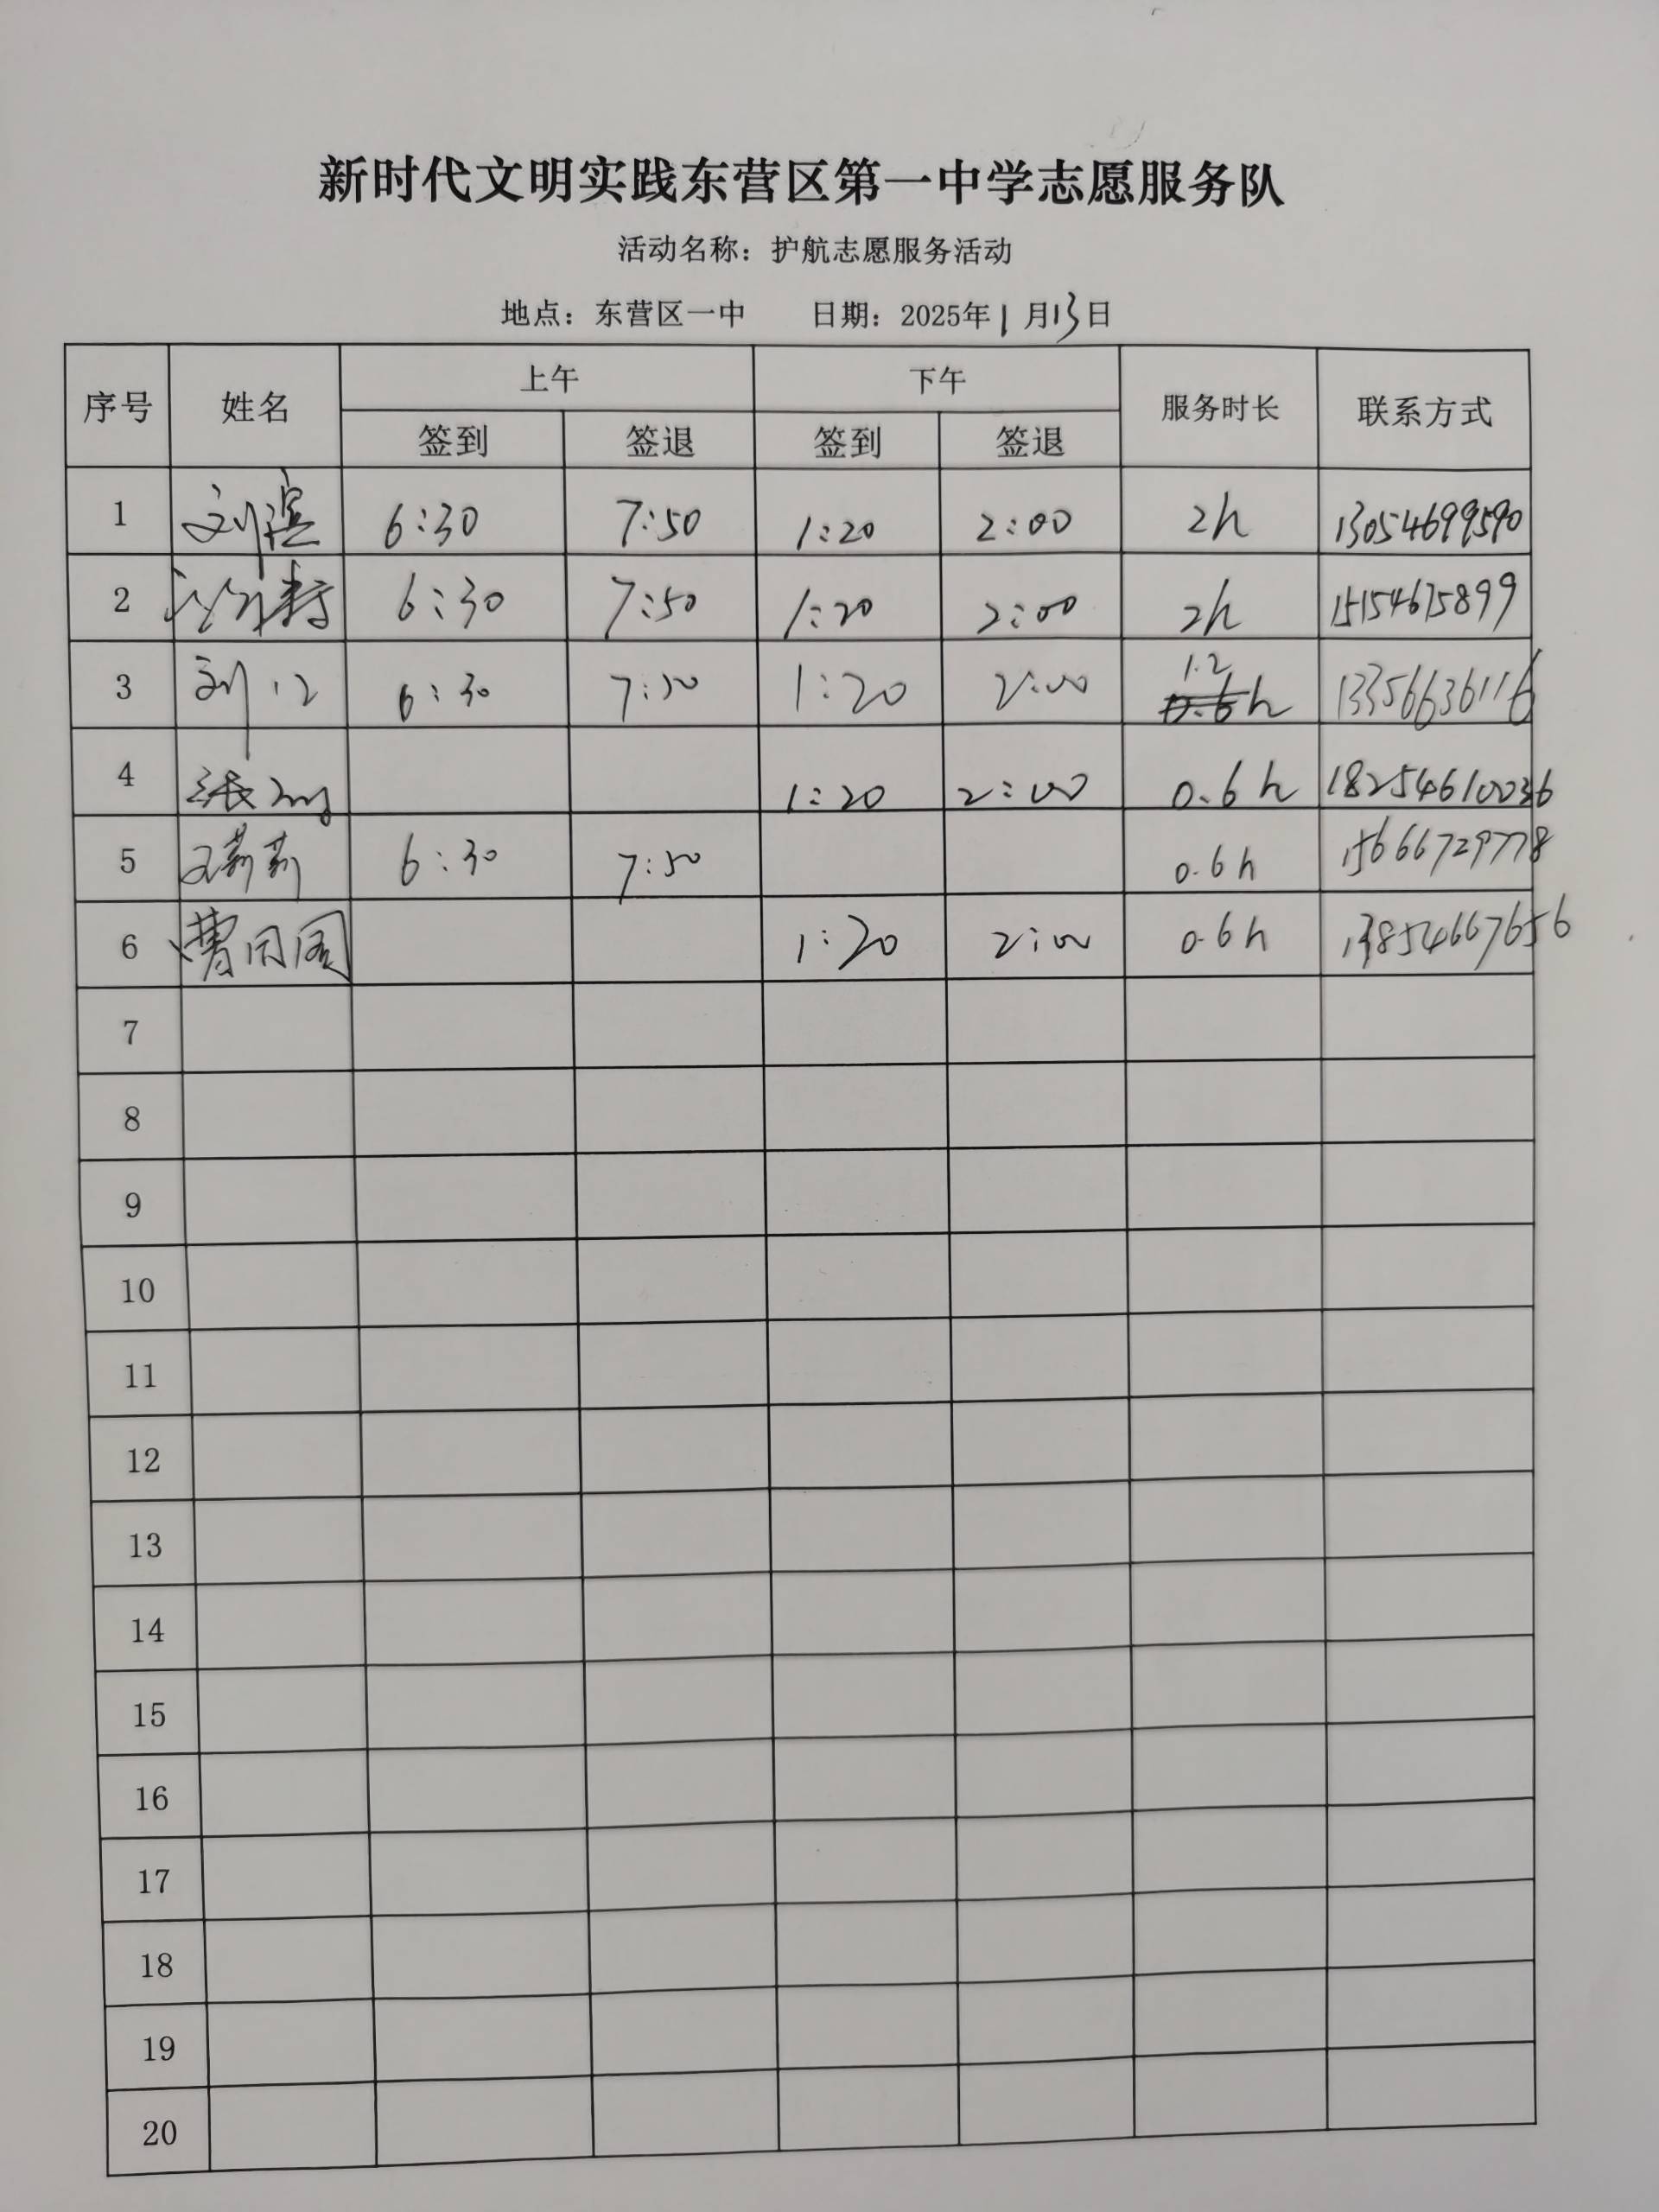 新时代文明实践东营区第一中学志愿服务队
活动名称：护航志愿服务活动
地点：东营区一中 日期：2025年1月13日
序号 姓名 上午 下午 服务时长 联系方式
签到 签退 签到 签退
1 刘滨 6:30 7:50 1:20 2:00 2h 13054699590
2 6:30 7:50 1:20 2:00 2h 15154675899
3 刘 6:30 7:50 1:20 2:00 1.2 h 13356636116
4 张 1:20 2:00 0.6h 18254610036
5 王莉莉 6:30 7:50 0.6h 15666729778
6 曹 1:20 2:00 0.6h 13854667656
7
8
9
10
11
12
13
14
15
16
17
18
19
20